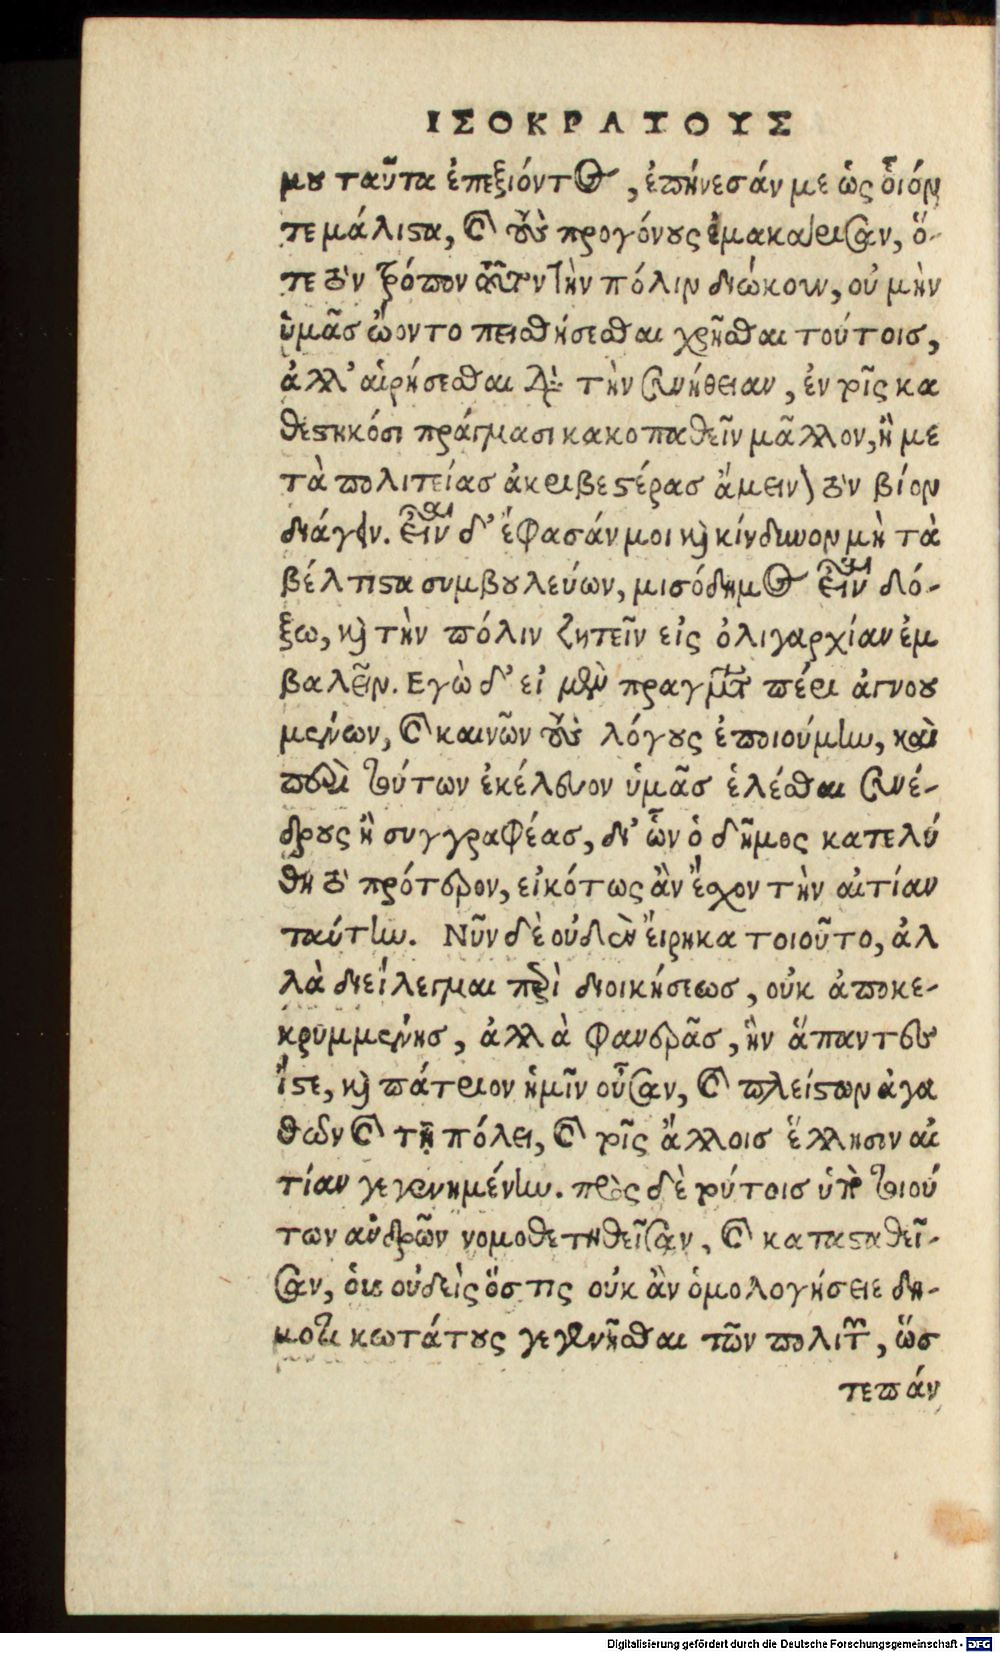 ΙΣΟΚΡΑΤΟΥΣ
μου ταῦτα ἐπεξιόντος, ἐπῄνεσάν με ὡς οἷόν
τε μάλιστα, καὶ τοὺς προγόνους ἐμακάρισαν, ὅ-
τε τὸν τρόπον τοῦτον τὴν πόλιν διώκουν, οὐ μὴν
ὑμᾶς ᾤοντο πεισθήσεσθαι χρῆσθαι τούτοις,
ἀλλ' αἱρήσεσθαι διὰ τὴν συνήθειαν, ἐν τοῖς κα
θεστηκόσι πράγμασι κακοπαθεῖν μᾶλλον, ἢ με
τὰ πολιτείας ἀκριβεστέρας ἄμεινον τὸν βίον
διάγειν. εἶναι δ' ἔφασάν μοι καὶ κίνδυνον μὴ τὰ
βέλτιστα συμβουλεύων, μισόδημος εἶναι δό-
ξω, καὶ τὴν πόλιν ζητεῖν εἰς ὀλιγαρχίαν ἐμ
βαλεῖν. Εγὼ δ' εἰ μὲν πραγμάτων πέρι ἀγνοου
μένων, καὶ καινῶν τοὺς λόγους ἐποιούμην, καὶ
περὶ τούτων ἐκέλευον ὑμᾶς ἑλέσθαι συνέ-
δρους ἢ συγγραφέας, δι' ὧν ὁ δῆμος κατελύ
θη τὸ πρότερον, εἰκότως ἂν ἔχον τὴν αἰτίαν
ταύτην. Νῦν δὲ οὐδὲν εἴρηκα τοιοῦτο, ἀλ
λὰ διείλεγμαι περὶ διοικήσεως, οὐκ ἀποκε-
κρυμμένης, ἀλλὰ φανερᾶς, ἣν ἅπαντες
ἴστε, καὶ πάτριον ἡμῖν οὖσαν, καὶ πλείστων ἀγα
θῶν καὶ τῇ πόλει, καὶ τοῖς ἄλλοις ἕλλησιν αἰ
τίαν γεγενημένην. πρὸς δὲ τούτοις ὑπὸ τοιού
των ἀνδρῶν νομοθετηθεῖσαν, καὶ κατασταθεῖ-
σαν, οὓς οὐδεὶς ὅστις οὐκ ἂν ὁμολογήσειε δη-
μοτικωτάτους γεγενῆσθαι τῶν πολιτῶν, ὥσ
τε πάν
Digitalisierung gefördert durch die Deutsche Forschungsgemeinschaft - DFG